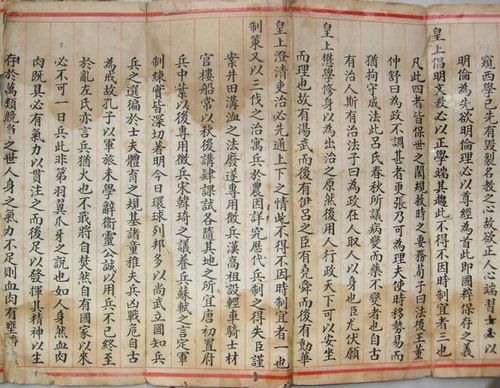 窺西學已先有毀裂名教之心故欲正人心端習
明倫為先欲明倫理必以尊經為首此即國粹保存之義
皇上倡明文教必以正學端其趨此不得不因時制宜者三也
凡此四者皆保世之閎規救時之要務荀子曰法後王董
仲舒曰為政不調甚者更張乃可為理夫使時移勢易而
猶拘守成法此呂氏春秋所議病變而藥不變者也自古
有治人斯有治法子曰為政在人取人以身也臣尤伏願
皇上懋學修身以為出治之原然後用人行政天下可以安坐
而理也故有湯武而後有伊呂之臣有堯舜而後有勳華
皇上澄清吏治必先通上下之情此不得不因時制宜者一也
制策又以三代之治寓兵於農因詳究歷代兵制之得失臣謹
案井田溝洫之法廢遂專用徵兵漢高祖設輕車騎士材
官樓船常以秋後講肄課試各隨其地之所宜唐初置府
兵中葉以後專用徵兵宋韓琦之議養兵蘇軾之言定軍
制練實皆深切著明今日環球列邦多以尚武立國知兵
兵之選偏於士夫體育之規基諸童稚夫兵凶戰危自古
為戒故孔子以軍旅未學辭衛靈公誠以用兵不已終至
於亂左氏亦言兵猶火也不戢將自焚然自有國家以來
必不可一日兵此非第羽翼爪牙之說也如人身然血肉
肉既具必有氣力以貫注之而後足以發揮其精神以生
存於萬類競爭之世人身之氣力不足則血肉有